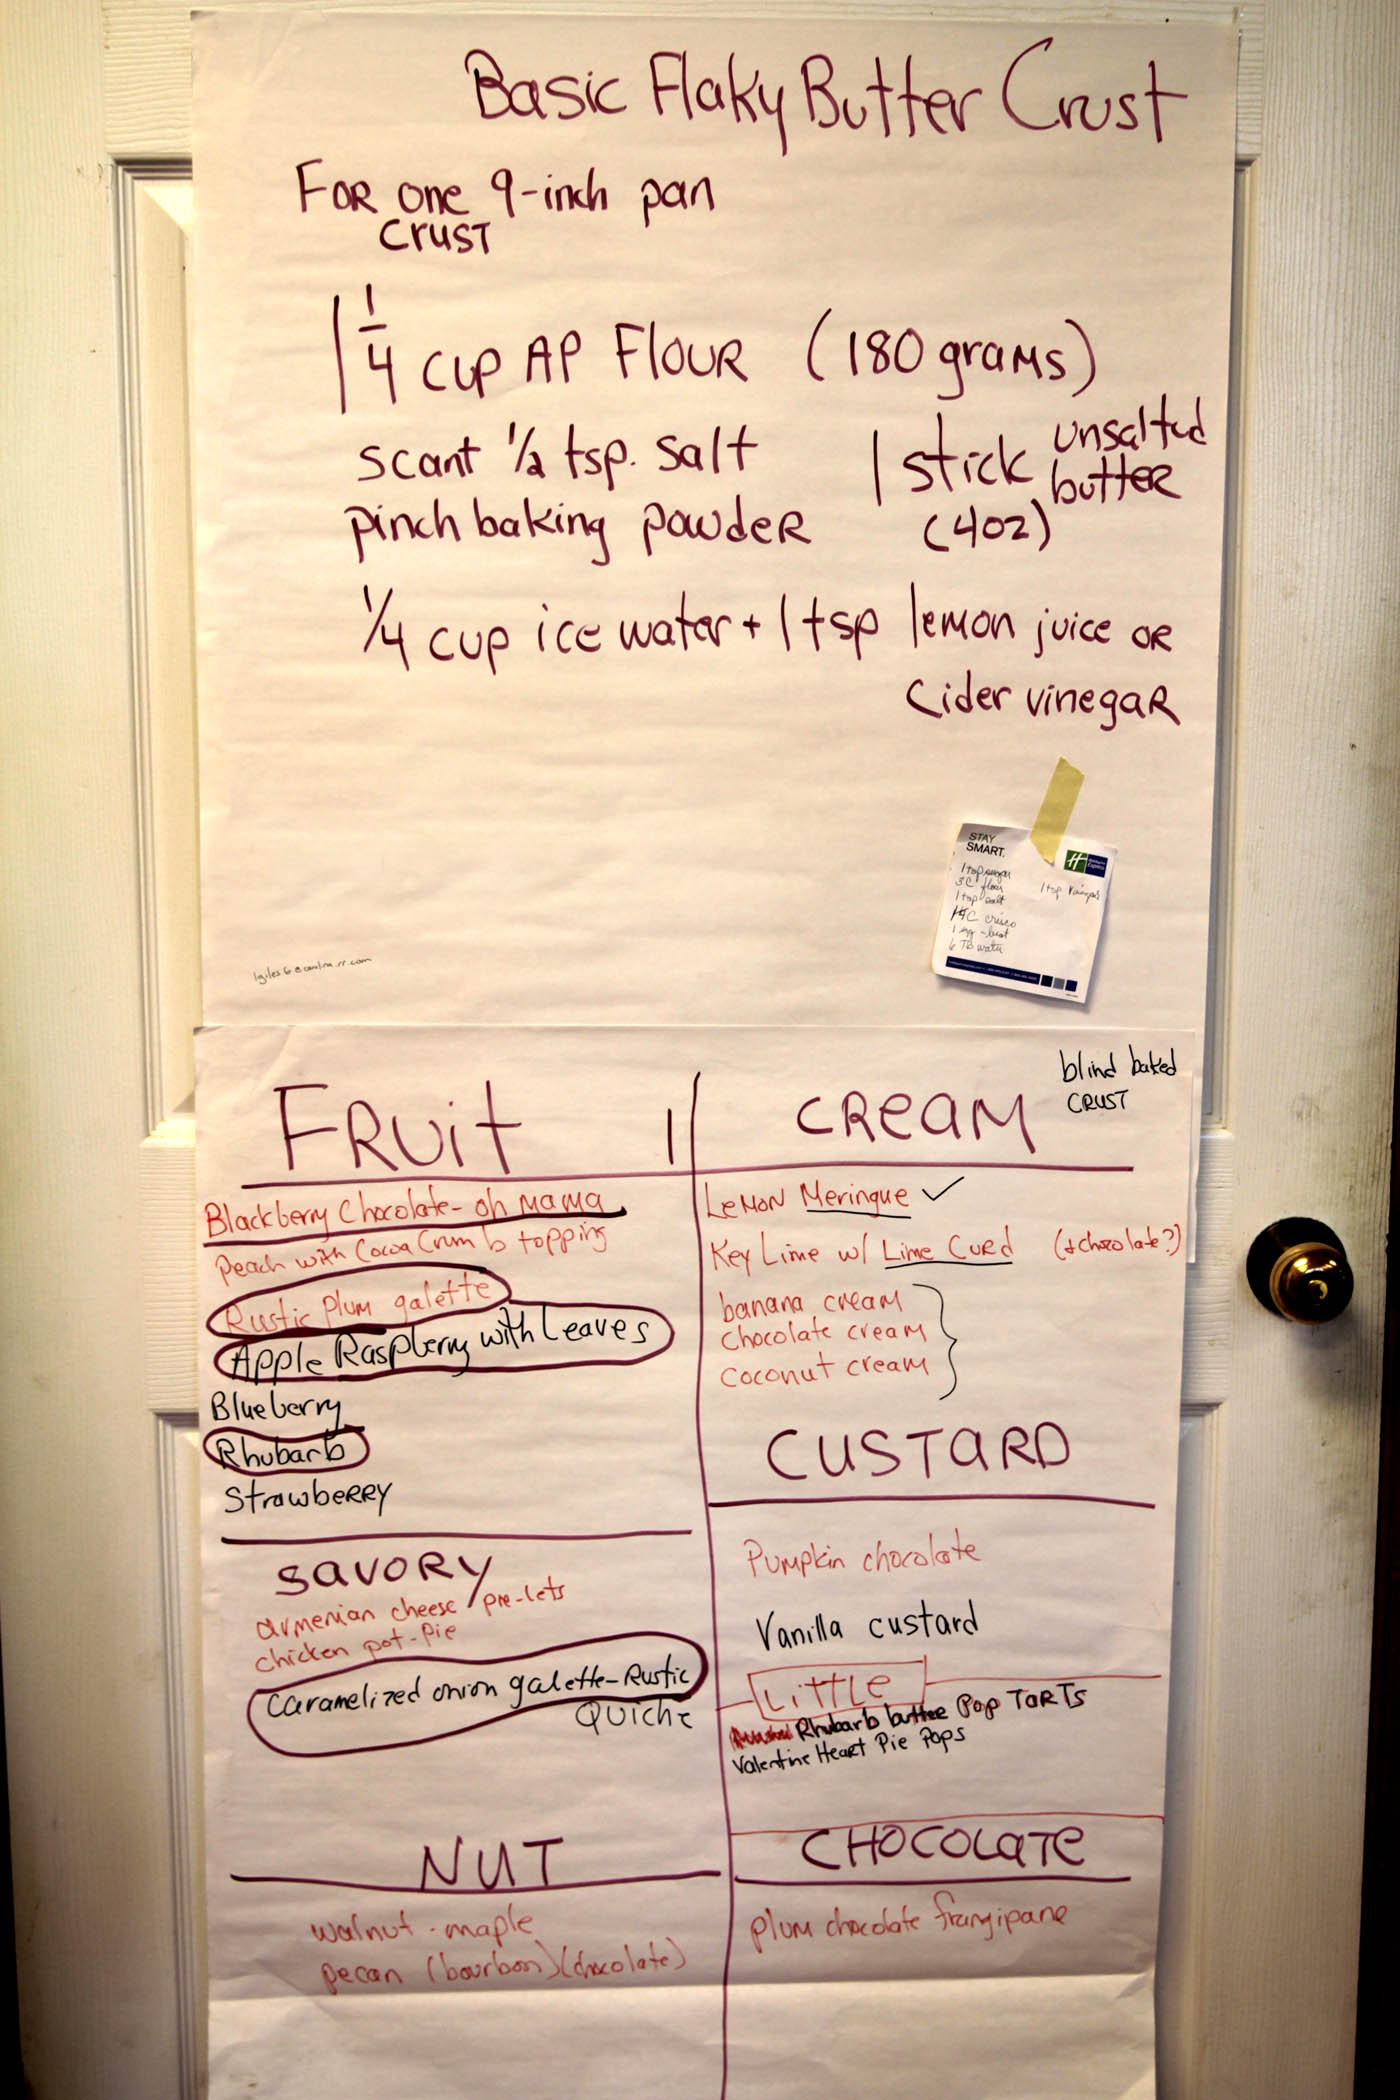 Basic Flaky Butter Crust
FOR one 9-inch pan
CRUST
1 1/4 cup AP FLOUR (180 grams)
scant 1/2 tsp. salt
1 stick unsalted
butter
pinch baking powder
(4oz)
1/4 cup ice water + 1 tsp lemon juice OR
cider vinegar
STAY
SMART.
1 tsp sugar
3C flour
1 tsp vinegar
1 tsp salt
C crisco
1 egg - beat
6 TB water
blind baked
CRUST
FRUIT
Blackberry Chocolate - oh mama
Peach with Cocoa Crumb topping
Rustic plum galette
Apple Raspberry with Leaves
Blueberry
Rhubarb
Strawberry
CREAM
Lemon Meringue ✓
Key Lime w/ Lime Curd (+chocolate?)
banana cream
chocolate cream
coconut cream
CUSTARD
Pumpkin chocolate
Vanilla custard
SAVORY
armenian cheese pie-lets
chicken pot-pie
caramelized onion galette-Rustic
Quiche
LITTLE
Rhubarb butter Pop TARTS
Valentine Heart Pie Pops
NUT
walnut - maple
pecan (bourbon) (chocolate)
CHOCOLATE
plum chocolate frangipane